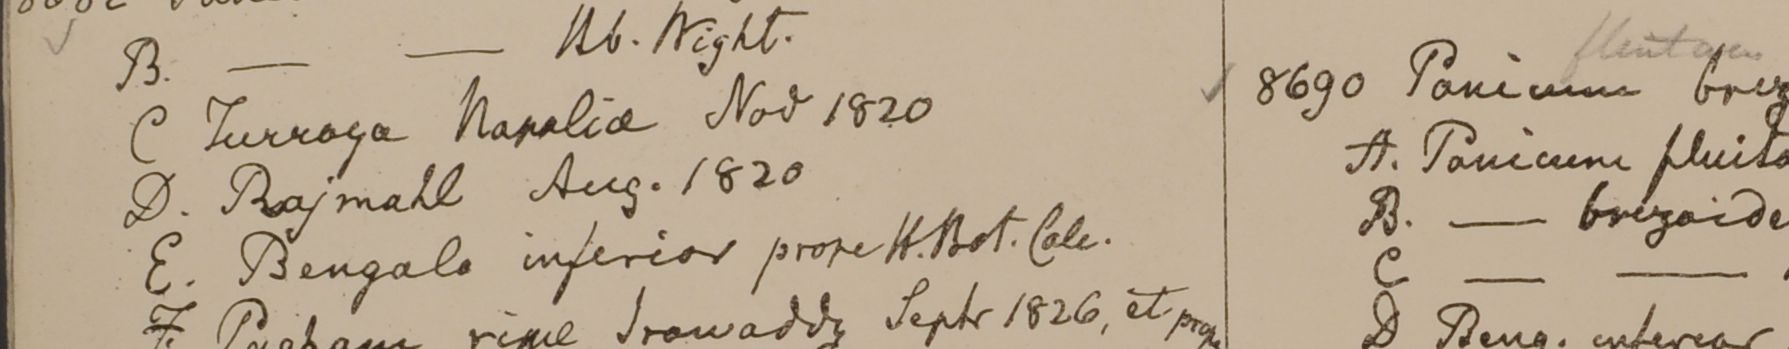 B. — — Hb. Wight.
C Turraya Napalia Nov 1820
D. Rajmahl Aug. 1820
E. Bengala inferior prope H. Bot. Calc.
F. ripae Irawaddy Septr 1826, et prope
8690 Panicum
A. Panicum fluita
B. — brizoide
C — —
D Beng. inferior